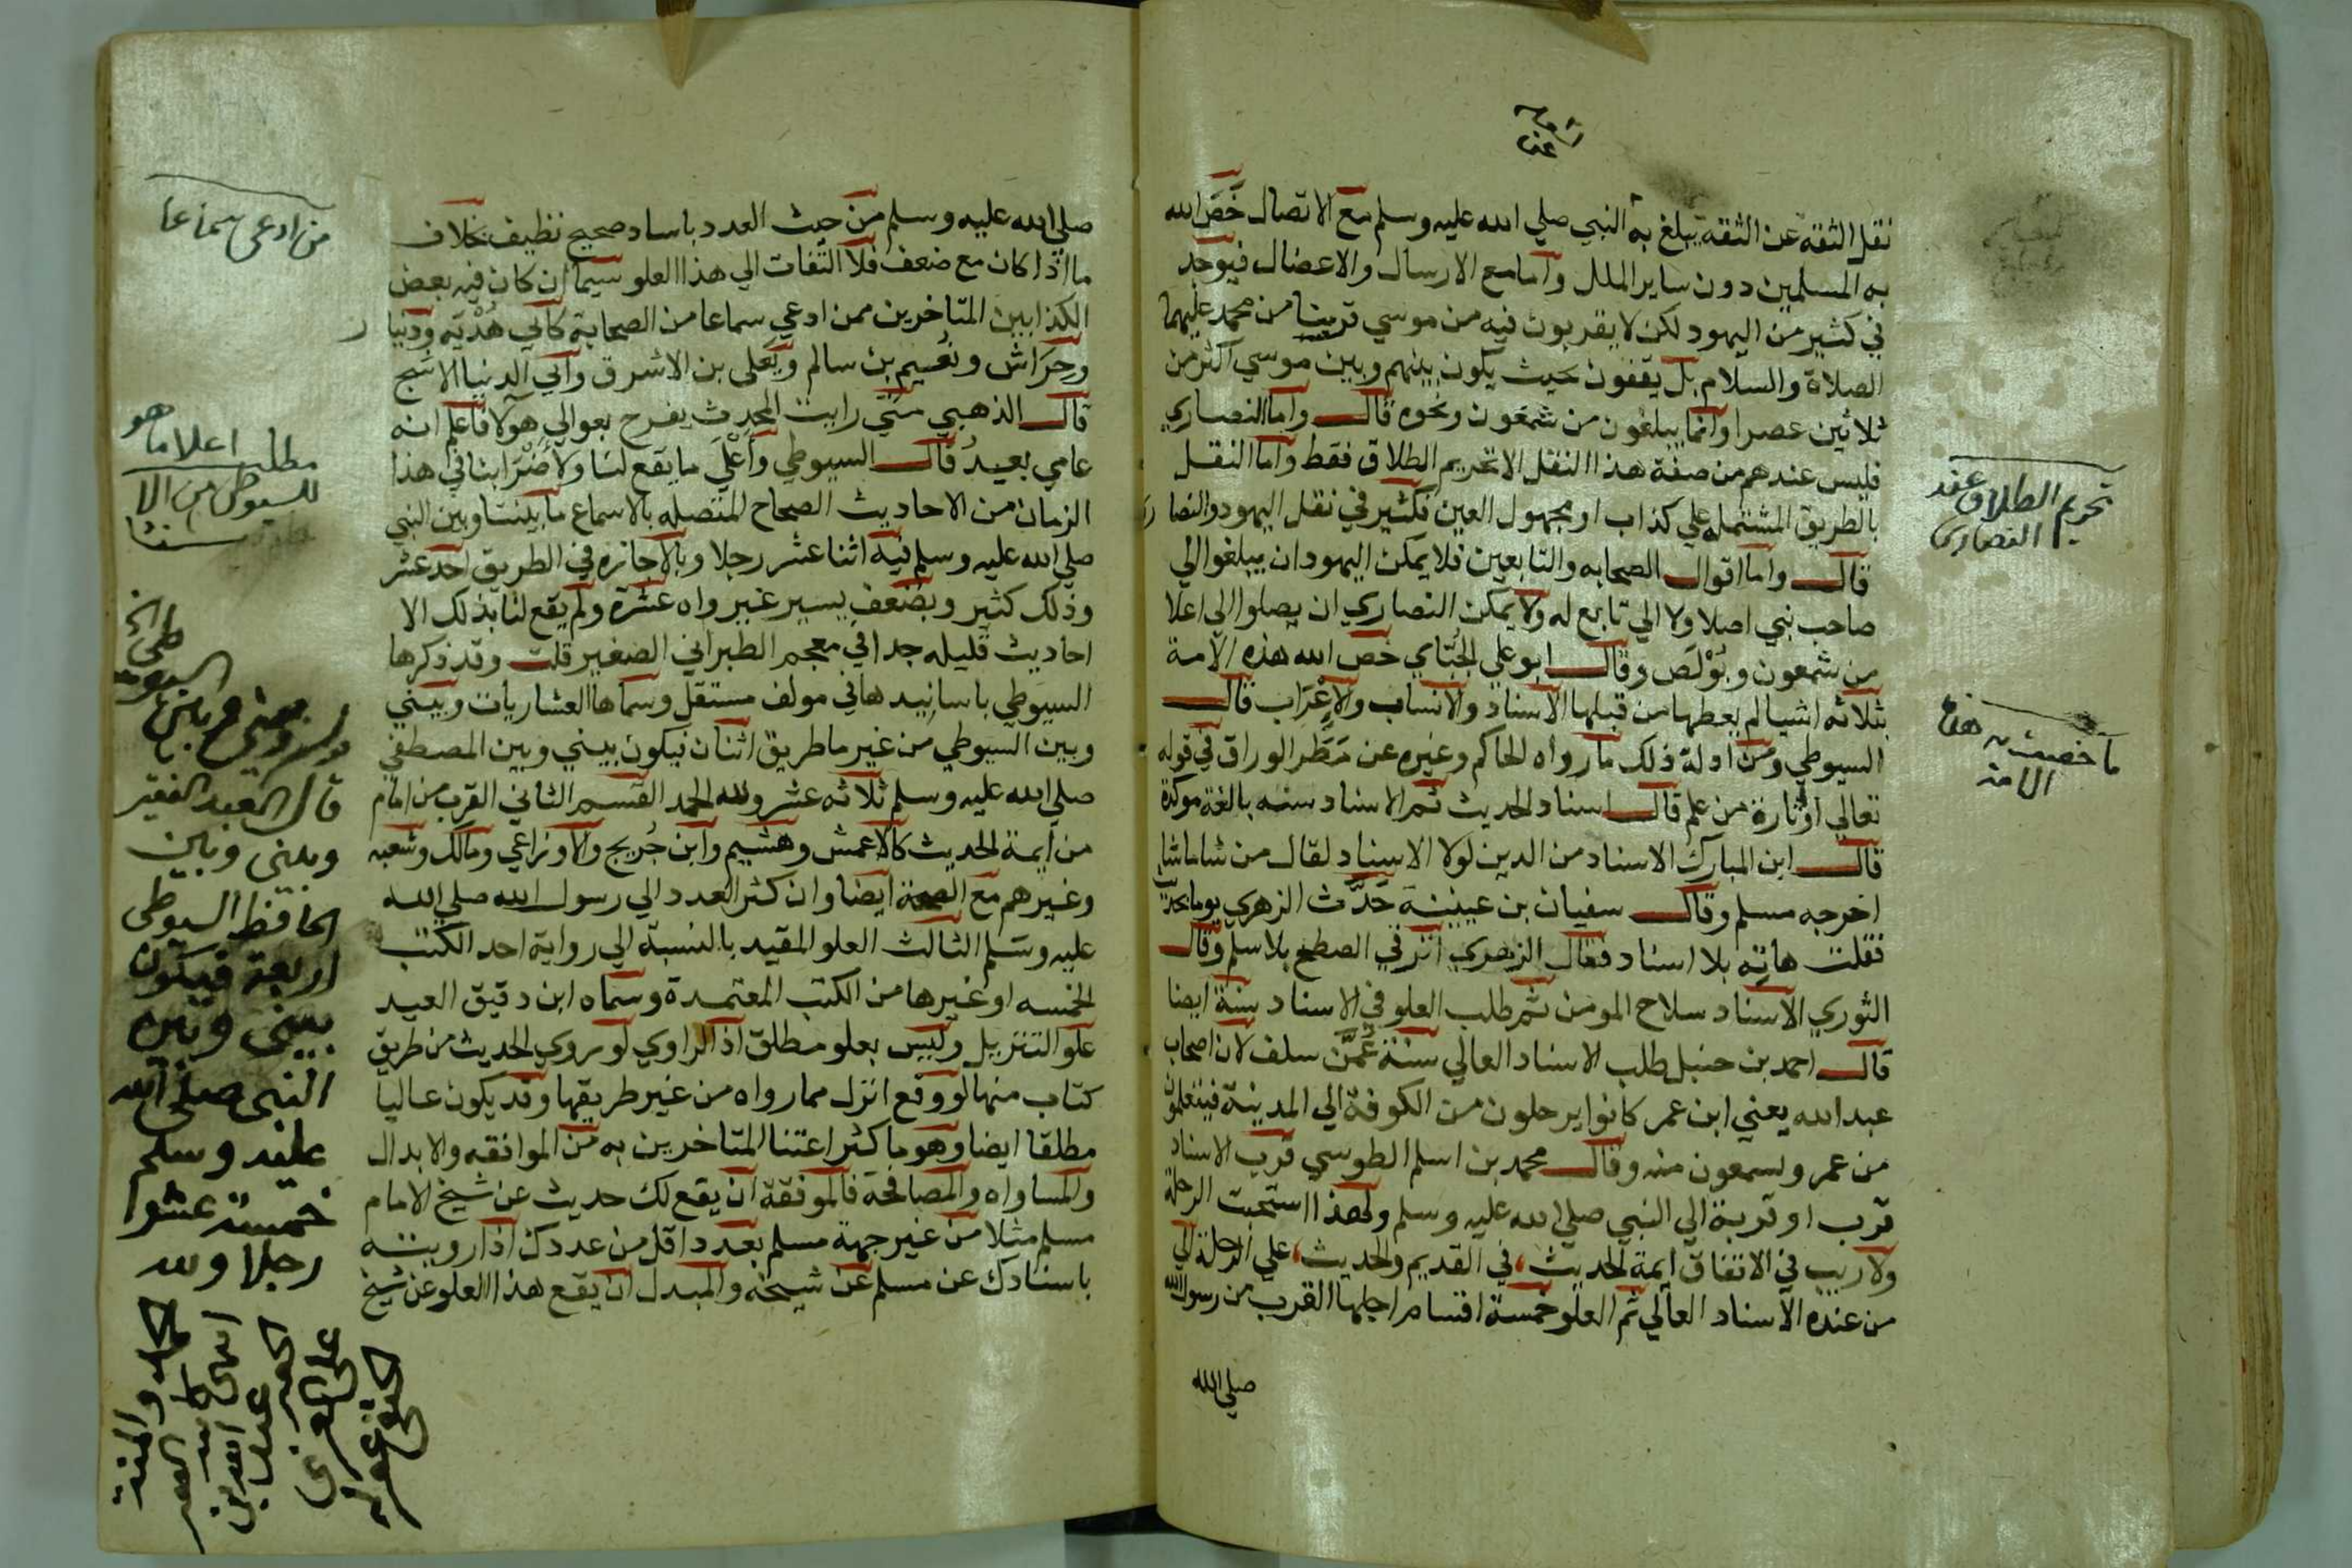 نقل الثقة عن الثقة يبلغ به النبي صلي الله عليه وسلم مع الاتصال خَصَّ الله
به المسلمين دون ساير الملل واما مع الارسال والاعضال فيوجد
في كثير من اليهود لكن لا يقربون فيه من موسي قربنا من محمد عليهما
الصلاة والسلام بل يقفون بحيث يكون بينهم وبين موسي اكثر من
ثلاثين عصرا وانما يبلغون من شمعون ونحوه قال واما النصاري
فليس عندهم من صفة هذا النقل الا تحريم الطلاق فقط واما النقل
بالطريق المشتمله علي كذاب او مجهول العين فكثير في نقل اليهود والنصاري
قال واما اقوال الصحابه والتابعين فلا يمكن اليهود ان يبلغوا الي
صاحب نبي اصلا ولا الي تابع له ولا يمكن النصاري ان يصلوا الي اعلا
من شمعون وبُوْلَص وقال ابو علي الجُبَّاي خَص الله هذه الامة
بثلاثه اشيا لم يعطها من قبلها الاسناد والانساب والاِعْرَاب قال
السيوطي ومن ادلة ذلك ما رواه الحاكم وغيره عن مَطَر الوراق في قوله
تعالي او اثارة من علم قال اسناد الحديث ثم الاسناد سنه بالغة موكدة
قال ابن المبارك الاسناد من الدين لولا الاسناد لقال من شا ما شا
اخرجه مسلم وقال سفيان بن عيينة حَدَّث الزهري يوما بحديث
فقلت هاتِه بلا اسناد فقال الزهري اترقي الصطح بلا سلم وقال
الثوري الاسناد سلاح المومن ثم طلب العلو في الاسناد سنة ايضا
قال احمد بن حنبل طلب الاسناد العالي سنة عَمَّن سلف لان اصحاب
عبد الله يعني ابن عمر كانوا يرحلون من الكوفة الي المدينة فيتعلمون
من عمر ويسمعون منه وقال محمد بن اسلم الطوسي قرب الاسناد
قرب او قربة الي النبي صلي الله عليه وسلم ولهذا استحبت الرحلة
ولا ريب في الاتفاق ايمة الحديث، في القديم والحديث، علي الرحلة الي
من عنده الاسناد العالي ثم العلو خمسة اقسام اجلها القرب من رسول الله
صلي الله
تحريم الطلاق عند
النصاري
ما خصت به هذه
الامة
صلي الله عليه وسلم من حيث العدد باسناد صحيح نظيف بخلاف
ما اذا كان مع ضعف فلا التفات الي هذا العلو سيما ان كان فيه بعض
الكذابين المتاخرين ممن ادعي سماعا من الصحابة كابي هُدْبَه ودينار
وخِرَاش ونُعَيم بن سالم ويَعلى بن الاشرق وابي الدنيا الاشج
قال الذهبي متي رايت المحدث يفرح بعوالي هولا فاعلم انه
عامي بعيد قال السيوطي واَعْلَي ما يقع لنا ولاَضْرَابنا في هذا
الزمان من الاحاديث الصحاح المتصله بالاسماع ما بيننا وبين النبي
صلي الله عليه وسلم فيه اثنا عشر رجلا وبالاجازه في الطريق احد عشر
وذلك كثير وبضعف يسير غير واه عشرة ولم يقع لنا بذلك الا
احاديث قليله جدا في معجم الطبراني الصغير قلت وقد ذكرها
السيوطي باسانيدها في مولف مستقل وسماها العشاريات وبيني
وبين السيوطي من غير ما طريق اثنان فيكون بيني وبين المصطفي
صلي الله عليه وسلم ثلاثه عشر ولله الحمد القسم الثاني القرب من امام
من ايمة الحديث كالاعمش وهشيم وابن جُريج والاوزاعي ومالك وشعبه
وغيرهم مع الصحة ايضا وان كثر العدد الي رسول الله صلي الله
عليه وسَلم الثالث العلو المقيد بالنسبة الي رواية احد الكتب
الخمسه او غيرها من الكتب المعتمدة وسماه ابن دقيق العيد
علو التنزيل وليس بعلو مطلق اذ الراوي لو روي الحديث من طريق
كتاب منها لو وقع انزل مما رواه من غير طريقها وقد يكون عاليا
مطلقا ايضا وهو ما كثر اعتنا المتاخرين به من الموافقه والابدال
والمساواه والمصافحة فالموفقة ان يقع لك حديث عن شيخ الامام
مسلم مثلا من غير جهة مسلم بعدد اقل من عددك اذا رويته
باسنادك عن مسلم عن شيخه والمبدل ان يقع هذا العلو عن شيخ
من ادعى سماعا
مطلب اعلا ما هو
للسيوطي من الا
قال العبد الفقير
وبيني وبين
الحافظ السيوطي
اربعة فيكون
بيني وبين
النبي صلى الله
عليه وسلم
خمسة عشر
رجلا ولله
الحمد والمنة